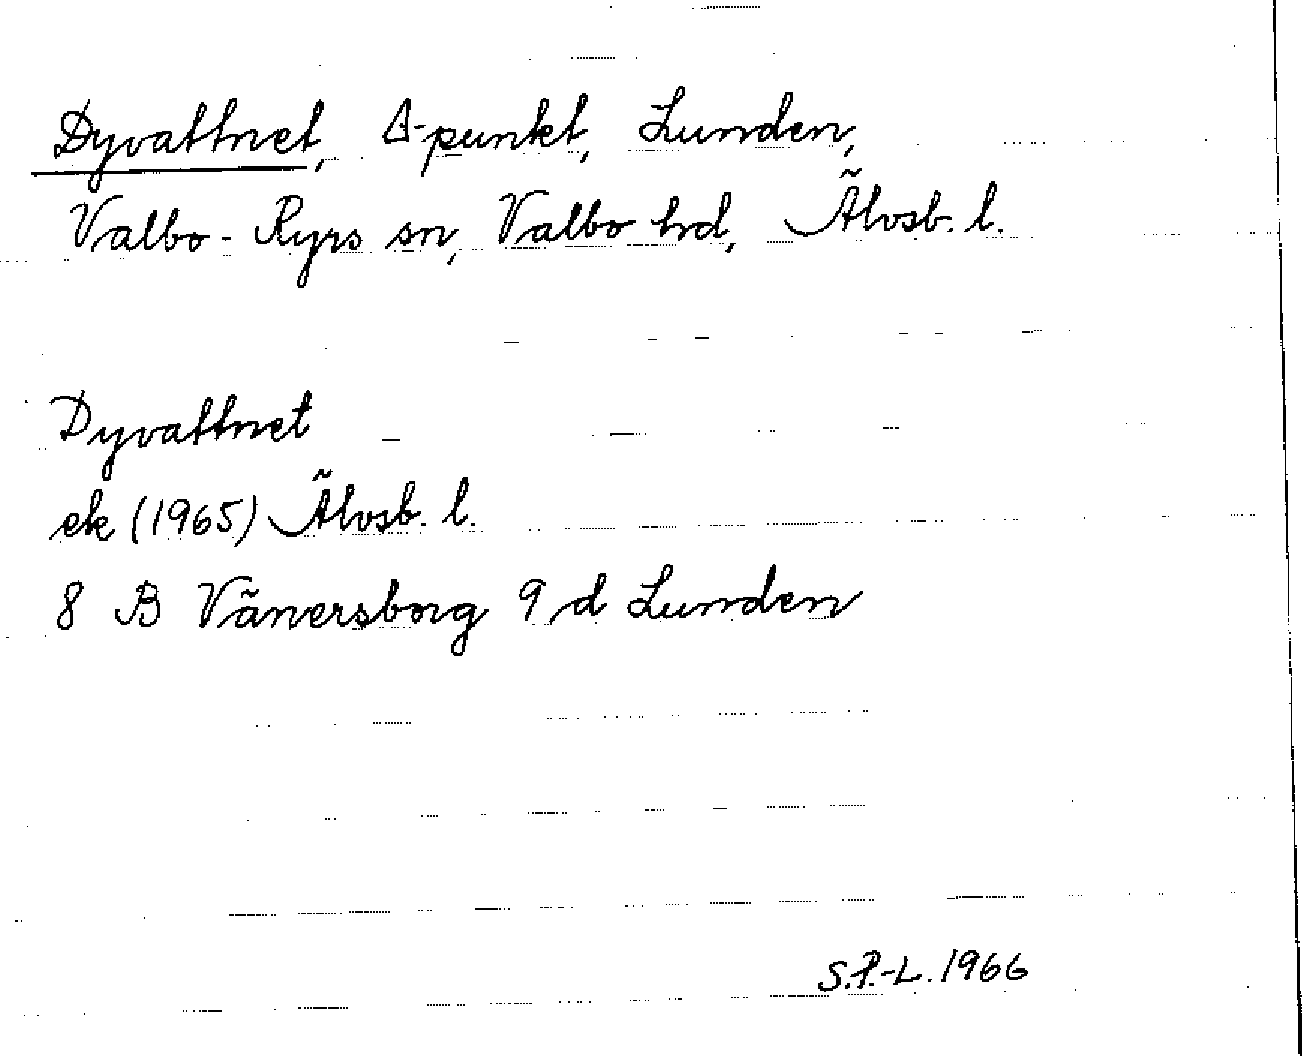 Dyvattnet, Δ-punkt, Lunden,
Valbo-Ryrs sn, Valbo hd, Älvsb. l.
Dyvattnet
ek (1965) Älvsb. l.
8 B Vänersborg 9 d Lunden
S.P.-L. 1966